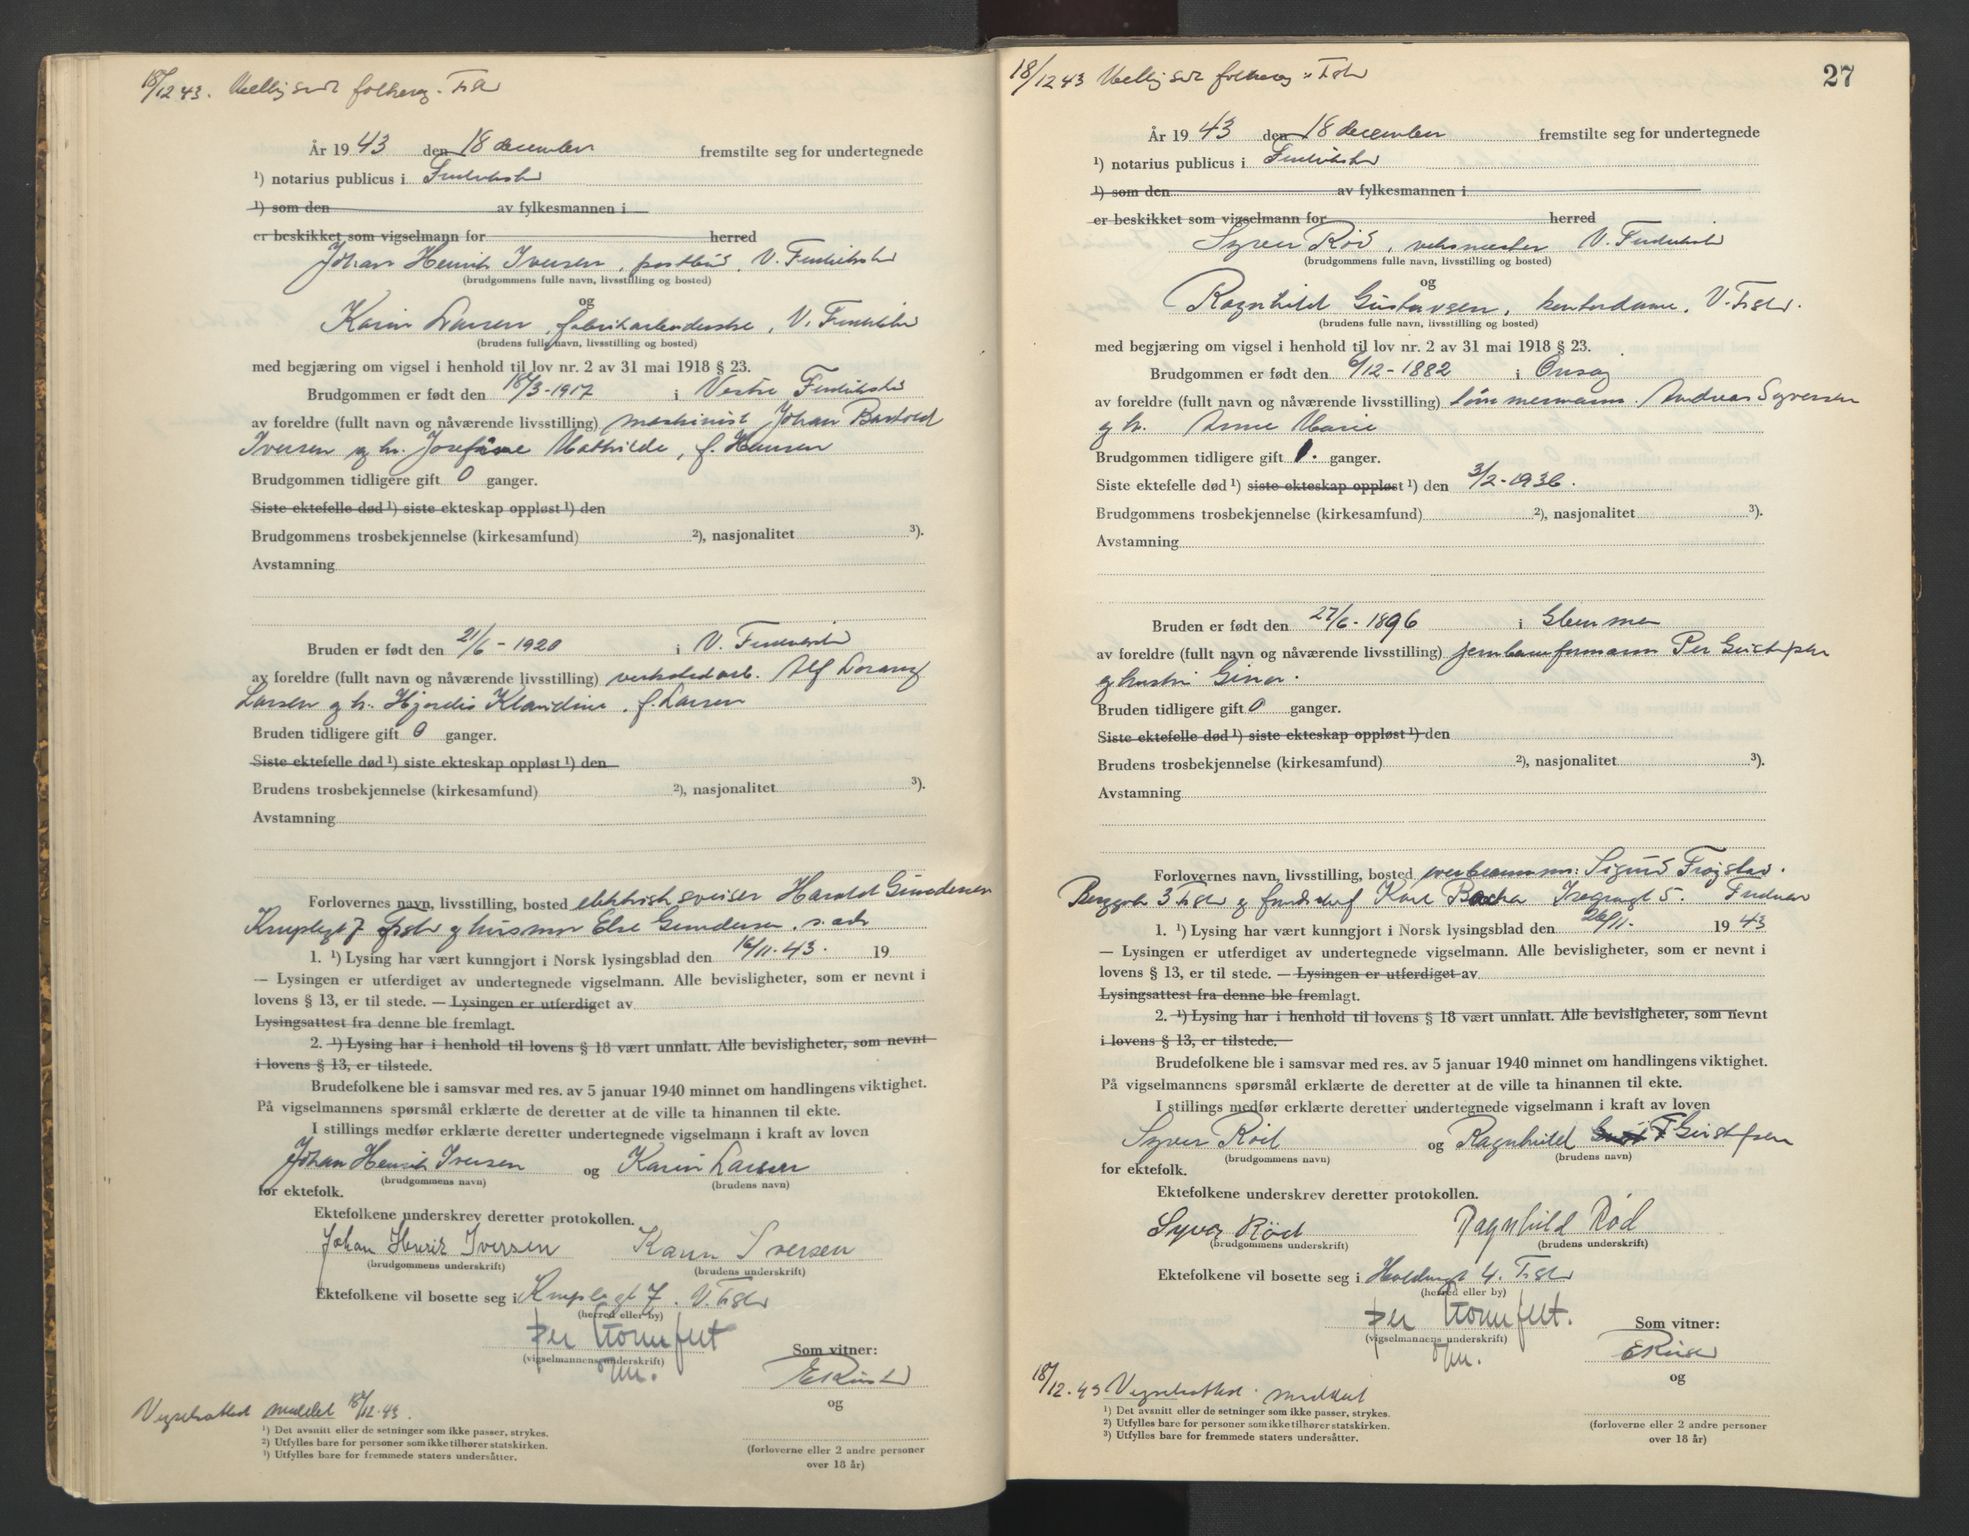 18/12 43. folkereg.
År 1943 den 18 december fremstilte seg for undertegnede
¹) notarius publicus i Fredrikstad
¹) som den av fylkesmannen i
er beskikket som vigselmann for herred
Johan Henrik Iversen, postbud, V. Fredrikstad
(brudgommens fulle navn, livsstilling og bosted)
og
Karin Larsen, fabrikarbeiderske, V. Fredrikstad
(brudens fulle navn, livsstilling og bosted)
med begjæring om vigsel i henhold til lov nr. 2 av 31 mai 1918 § 23.
Brudgommen er født den 18/3-1917 i Vestre Fredrikstad
av foreldre (fullt navn og nåværende livsstilling) maskinist Johan Barthold
Iversen og h. Josefine Mathilde, f. Hansen
Brudgommen tidligere gift 0 ganger.
Siste ektefelle død ¹) siste ekteskap oppløst ¹) den
Brudgommens trosbekjennelse (kirkesamfund) ²), nasjonalitet ³).
Avstamning
Bruden er født den 21/6-1920 i V. Fredrikstad
av foreldre (fullt navn og nåværende livsstilling) verkstedarb. Alf
Larsen og h. Hjørdis Klaudine, f. Larsen
Bruden tidligere gift 0 ganger.
Siste ektefelle død ¹) siste ekteskap oppløst ¹) den
Brudens trosbekjennelse (kirkesamfund) ²), nasjonalitet ³).
Avstamning
Forlovernes navn, livsstilling, bosted elektrisk sveiser Harald Gundersen
7 og husmor Else Gundersen,
1. ¹) Lysing har vært kunngjort i Norsk lysingsblad den 16/11.43. 19
— Lysingen er utferdiget av undertegnede vigselmann. Alle bevisligheter, som er nevnt i
lovens § 13, er til stede. — Lysingen er utferdiget av
Lysingsattest fra denne ble fremlagt.
2. ¹) Lysing har i henhold til lovens § 18 vært unnlatt. Alle bevisligheter, som nevnt
i lovens § 13, er tilstede.
Brudefolkene ble i samsvar med res. av 5 januar 1940 minnet om handlingens viktighet.
På vigselmannens spørsmål erklærte de deretter at de ville ta hinannen til ekte.
I stillings medfør erklærte deretter undertegnede vigselmann i kraft av loven
Johan Henrik Iversen og Karin Larsen
(brudgommens navn) (brudens navn)
for ektefolk.
Ektefolkene underskrev deretter protokollen.
Johan Henrik Iversen Karin Iversen
(brudgommens underskrift) (brudens underskrift)
Ektefolkene vil bosette seg i 7. V. Fstd
(herred eller by)
Per
(vigselmannens underskrift)
Som vitner:
og
Vigselsattest meddelt 18/12.43.
¹) Det avsnitt eller de setninger som ikke passer, strykes.
²) Utfylles bare for personer som ikke tilhører statskirken.
³) Utfylles bare for fremmede staters undersåtter.
(forloverne eller 2 andre personer
over 18 år)
27
18/12 43 folkereg.
År 1943 den 18 december fremstilte seg for undertegnede
¹) notarius publicus i Fredrikstad
¹) som den av fylkesmannen i
er beskikket som vigselmann for herred
Syver Rød, verksmester V. Fredrikstad
(brudgommens fulle navn, livsstilling og bosted)
og
Ragnhild Gustavsen, kontordame, V. Fstd.
(brudens fulle navn, livsstilling og bosted)
med begjæring om vigsel i henhold til lov nr. 2 av 31 mai 1918 § 23.
Brudgommen er født den 6/12-1882 i Onsøy
av foreldre (fullt navn og nåværende livsstilling) tømmermann Andreas Syversen
og h. Anne Marie
Brudgommen tidligere gift 1. ganger.
Siste ektefelle død ¹) siste ekteskap oppløst ¹) den 3/2-1936.
Brudgommens trosbekjennelse (kirkesamfund) ²), nasjonalitet ³).
Avstamning
Bruden er født den 27/6-1896 i Glemmen
av foreldre (fullt navn og nåværende livsstilling) Per Gustafsen
og hustru Gina.
Bruden tidligere gift 0 ganger.
Siste ektefelle død ¹) siste ekteskap oppløst ¹) den
Brudens trosbekjennelse (kirkesamfund) ²), nasjonalitet ³).
Avstamning
Forlovernes navn, livsstilling, bosted Sigurd Frøystad.
3 Fstd og Karl 5.
1. ¹) Lysing har vært kunngjort i Norsk lysingsblad den 26/11. 1943
— Lysingen er utferdiget av undertegnede vigselmann. Alle bevisligheter, som er nevnt i
lovens § 13, er til stede. — Lysingen er utferdiget av
Lysingsattest fra denne ble fremlagt.
2. ¹) Lysing har i henhold til lovens § 18 vært unnlatt. Alle bevisligheter, som nevnt
i lovens § 13, er tilstede.
Brudefolkene ble i samsvar med res. av 5 januar 1940 minnet om handlingens viktighet.
På vigselmannens spørsmål erklærte de deretter at de ville ta hinannen til ekte.
I stillings medfør erklærte deretter undertegnede vigselmann i kraft av loven
Syver Rød og Ragnhild Gustafsen
(brudgommens navn) (brudens navn)
for ektefolk.
Ektefolkene underskrev deretter protokollen.
Syver Rød Ragnhild Rød
(brudgommens underskrift) (brudens underskrift)
Ektefolkene vil bosette seg i 4. Fstd
(herred eller by)
Per
(vigselmannens underskrift)
Som vitner:
og
18/12.43 Vigselsattest meddelt
¹) Det avsnitt eller de setninger som ikke passer, strykes.
²) Utfylles bare for personer som ikke tilhører statskirken.
³) Utfylles bare for fremmede staters undersåtter.
(forloverne eller 2 andre personer
over 18 år)